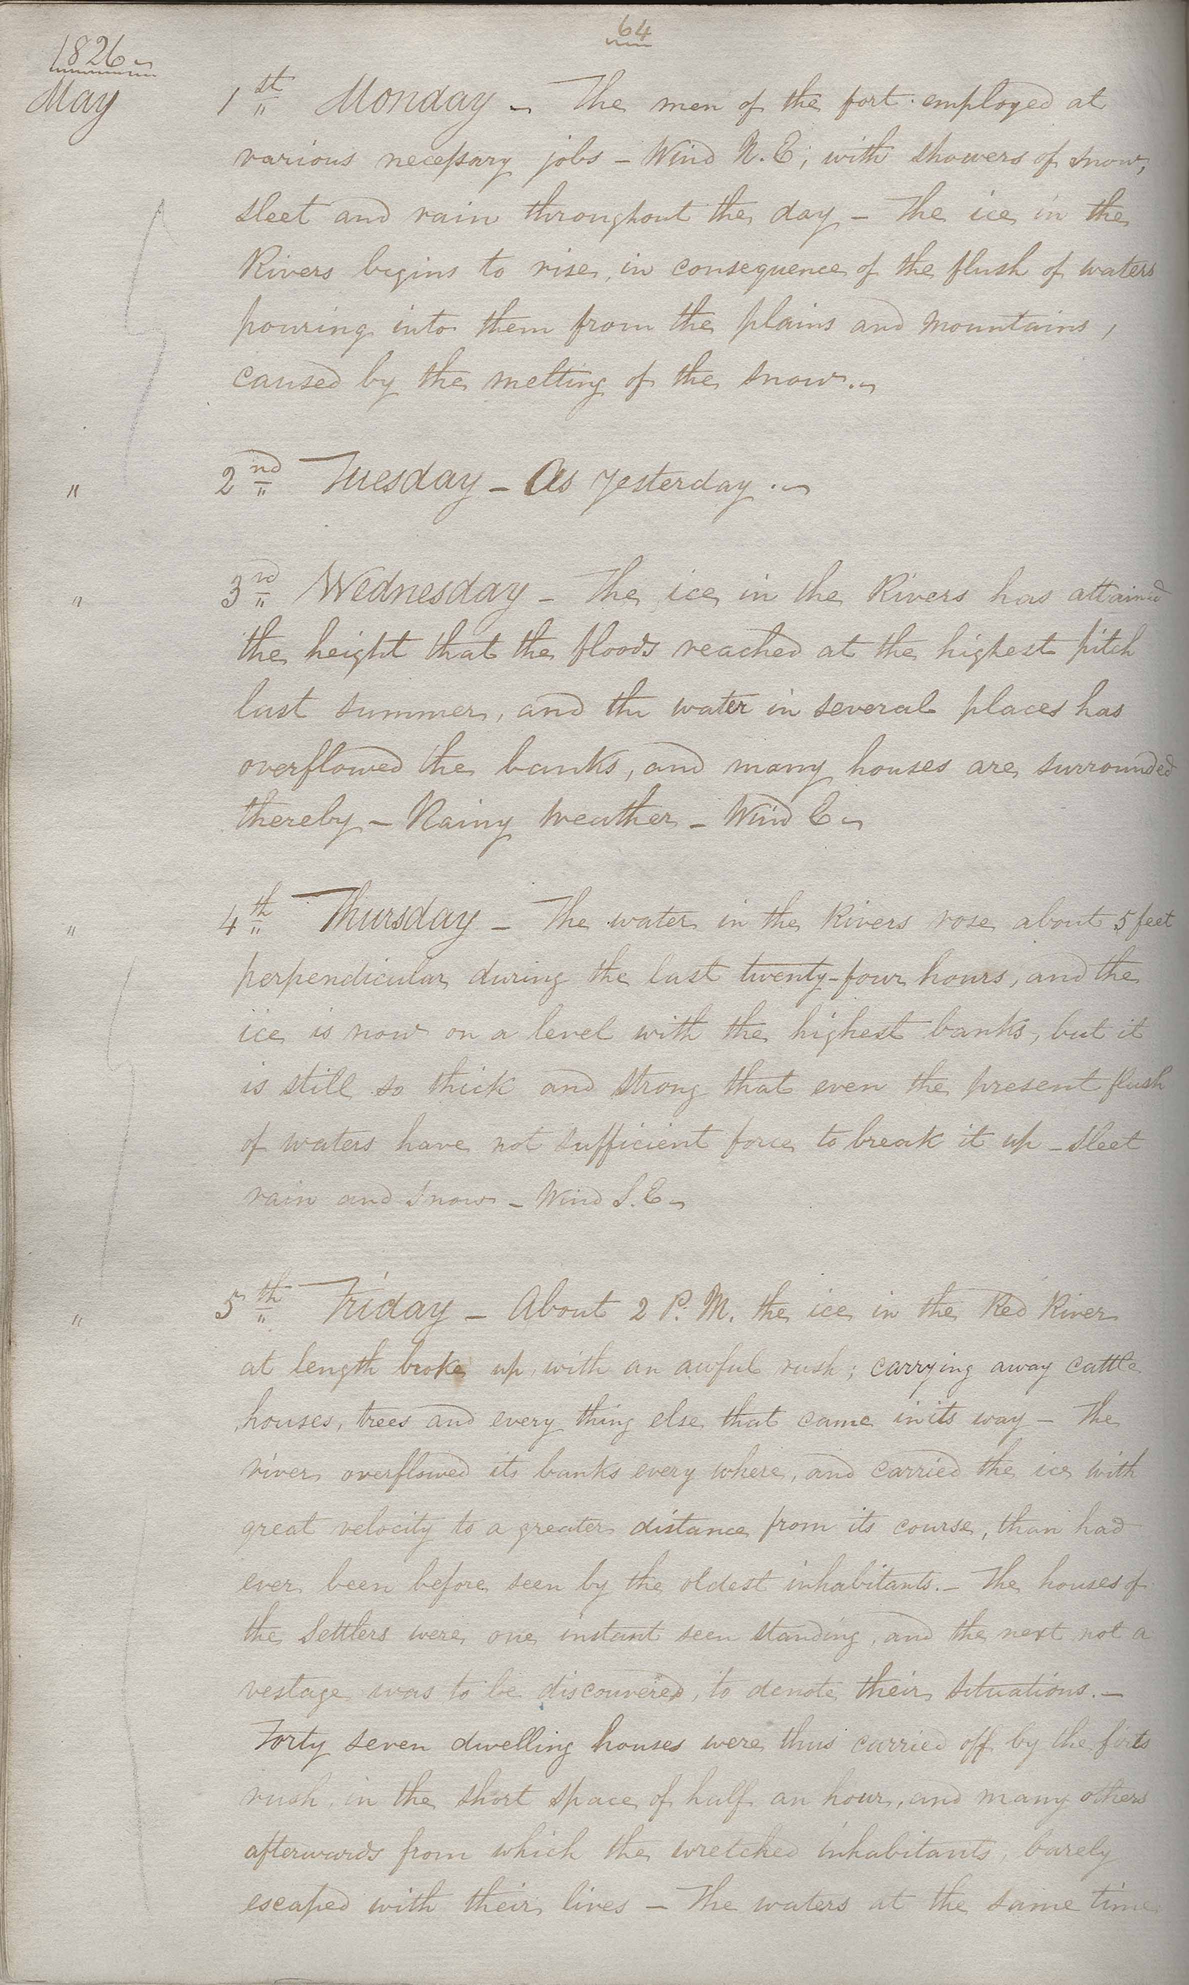 64
1826
May
1st Monday - The men of the fort employed at
various necessary jobs - Wind N. E; with showers of snow,
sleet and rain throughout the day - The ice in the
Rivers begins to rise, in consequence of the flush of waters
pouring into them from the plains and mountains,
caused by the melting of the snow.
" 2nd Tuesday - As yesterday.
" 3rd Wednesday - The ice in the Rivers has attained
the height that the floods reached at the highest pitch
last summer, and the water in several places has
overflowed the banks, and many houses are surrounded
thereby - Rainy weather - Wind E
" 4th Thursday - The water in the Rivers rose about 5 feet
perpendicular during the last twenty-four hours, and the
ice is now on a level with the highest banks, but it
is still so thick and strong that even the present flush
of waters have not sufficient force to break it up - sleet
rain and snow - Wind S. E
" 5th Friday - About 2 P. M. the ice in the Red River
at length broke up with an awful rush; carrying away cattle
houses, trees and every thing else that came in its way - The
river overflowed its banks every where, and carried the ice with
great velocity to a greater distance from its course, than had
ever been before seen by the oldest inhabitants. - The houses of
the Settlers were one instant seen standing, and the next not a
vestage was to be discouvered, to denote their situations. -
Forty seven dwelling houses were thus carried off by the firts
rush, in the short space of half an hour, and many others
afterwards from which the wretched inhabitants barely
escaped with their lives - The waters at the same time